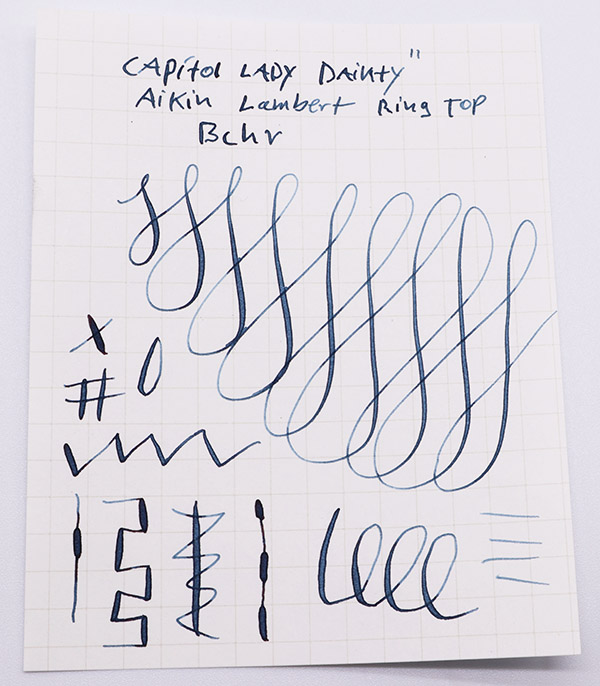 Capitol Lady Dainty"
Aikin Lambert Ring Top
Bchr
x
# 0